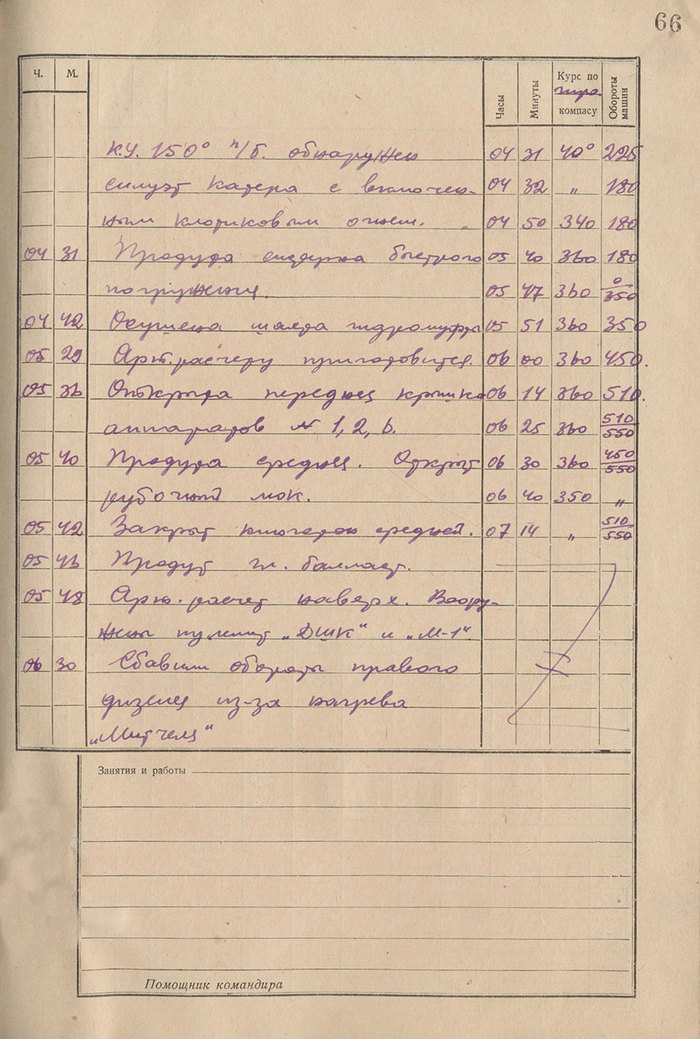 66
Ч. М. Часы Минуты Курс по гиро. компасу Обороты машин
К.У. 150° п/б. обнаружен 04 31 40° 225
силуэт катера с включен- 04 32 „ 180
ным клотиковым огнем. 04 50 340 180
04 31 Продута цистерна быстрого 05 40 360 180
погружения. 05 47 360 0/350
04 42 Осушена шахта гидромуфты 05 51 360 350
05 29 Арт.расчету приготовится. 06 00 360 450.
05 36 Открыта передняя крышка 06 14 360 510.
аппаратов № 1, 2, 6. 06 25 360 510/550
05 40 Продута средняя. Открыт 06 30 360 450/550
рубочный люк. 06 40 350 „
05 42 Закрыт кингстон средней. 07 14 „ 510/550
05 43 Продут гл. балласт.
05 48 Арт. расчет наверх. Воору-
жены пулемет „ДШК“ и „М-1“
06 30 Сбавили обороты правого
дизеля из-за нагрева
„Митчеля“
Занятия и работы
Помощник командира